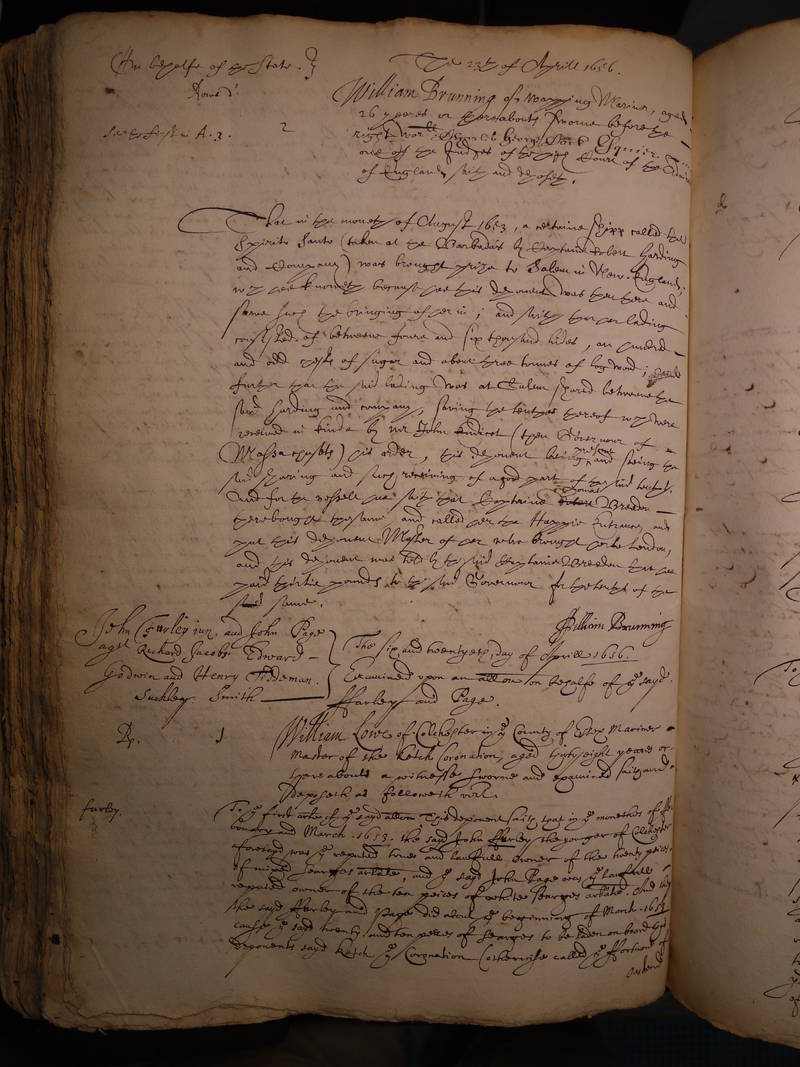 On behalfe of the State.
The 23th of Aprill 1656.
Rowe dt
William Brunning of Wapping Mariner, aged
26 yeares or thereabouts sworne before the
2
right wor:ll George Esquier
one of the Judges of the high Court of the
of England, saith and deposeth.
That in the moneth of August 1653, a certaine shipp called the
Spirito Santo (taken at the Barbadas by Captaine Robert Harding
and Company) was brought prize to Salem in New-England,
wch hee knoweth because hee this deponent was then there and
sawe such the bringing of her in; and saith that her lading
consisted of betweene foure and six thousand hides, an hundred
and odd chests of sugar and about three tonnes of logwood;
further that the said lading was at Salem shared betweene the
said Harding and company, saving the tenths thereof wch were
received in kinde by mr John Endicot (then Governour of
Massachusets) his order, this deponent being present and seeing the
said sharing and such receiving of a good part of the said tenths.
And for the vessell hee saith that Captaine Breedon
there bought the same and called her the Happie Entrance, and
put this deponent Master of her who brought her to London,
and this deponent was told by the said Captaine Breedon that hee
paid thirtie pounds to the said Governour for the tenth of the
said same.
William Brunning
John Furley iunr. and John Page
agt Richard Jacoby Edward
Godwin and Henry Tideman.
Suckley Smith
The six and twentyeth day of Aprill 1656.
Examined upon an allon on behalfe of ye sayd
Ffurley and Page.
Rp.
1
William Lowe of Colchester in ye County of Essex Mariner
Master of the Ketch Coronation, aged thirty eight yeares or
thereabouts a witnesse sworne and examined saith and
deposeth as followeth vizt.
furley.
To ye first arlre of ye sayd allon This deponent saith that in ye monethes of ffe
bruary and March. 1653. the sayd John Ffurley the younger of Colchester
aforesayd was ye reputed true and lawfull owner of the twenty peices
of mixed Searges arlate, and ye sayd John Page was ye lawfull
reputed owner of the ten peices of white Searges arlate. And they
the sayd Ffurley and Page did about ye beginning of March. 1653
cause ye sayd twenty and ten peices of Searges to be laden on board this
deponents sayd ketch ye Coronation (otherwise called ye